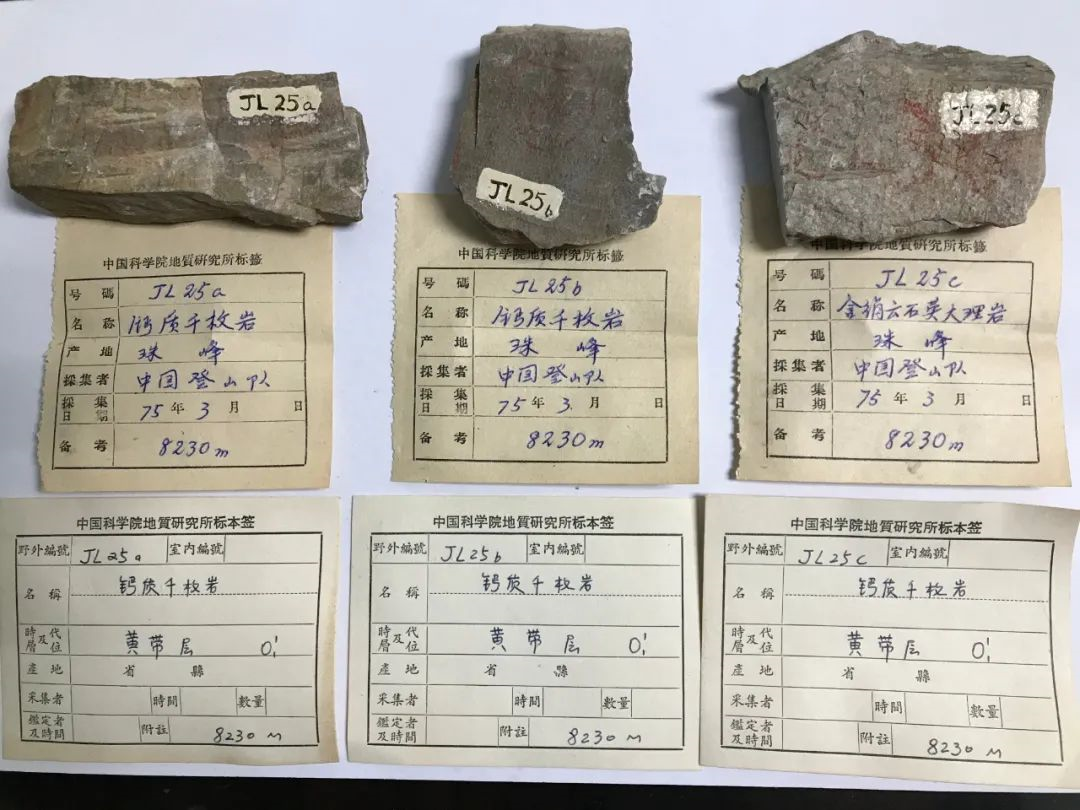 JL25a
JL25b
JL25c
中国科学院地質研究所标籤
号碼 JL25a
名称 钙质千枚岩
产地 珠峰
採集者 中国登山队
採集日期 75年3月 日
备考 8230m
中国科学院地質研究所标籤
号碼 JL25b
名称 钙质千枚岩
产地 珠峰
採集者 中国登山队
採集日期 75年3月 日
备考 8230m
中国科学院地質研究所标籤
号碼 JL25c
名称 含绢云石英大理岩
产地 珠峰
採集者 中国登山队
採集日期 75年3月 日
备考 8230m
中国科学院地質研究所标本签
野外編號 JL25a 室内編號
名稱 钙质千枚岩
時代及層位 黄带层 O¦
產地 省 縣
采集者 時間 數量
鑑定者及時間 附註 8230m
中国科学院地質研究所标本签
野外編號 JL25b 室内編號
名稱 钙质千枚岩
時代及層位 黄带层 O¦
產地 省 縣
采集者 時間 數量
鑑定者及時間 附註 8230m
中国科学院地質研究所标本签
野外編號 JL25c 室内編號
名稱 钙质千枚岩
時代及層位 黄带层 O¦
產地 省 縣
采集者 時間 數量
鑑定者及時間 附註 8230m